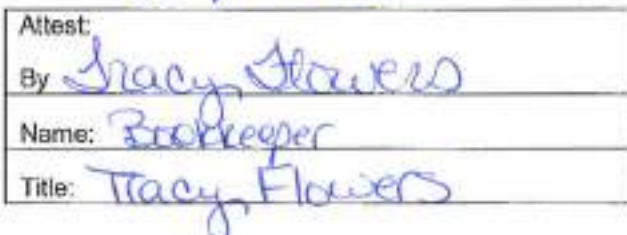 Attest:
By Tracy Flowers
Name: Bookkeeper
Title: Tracy Flowers